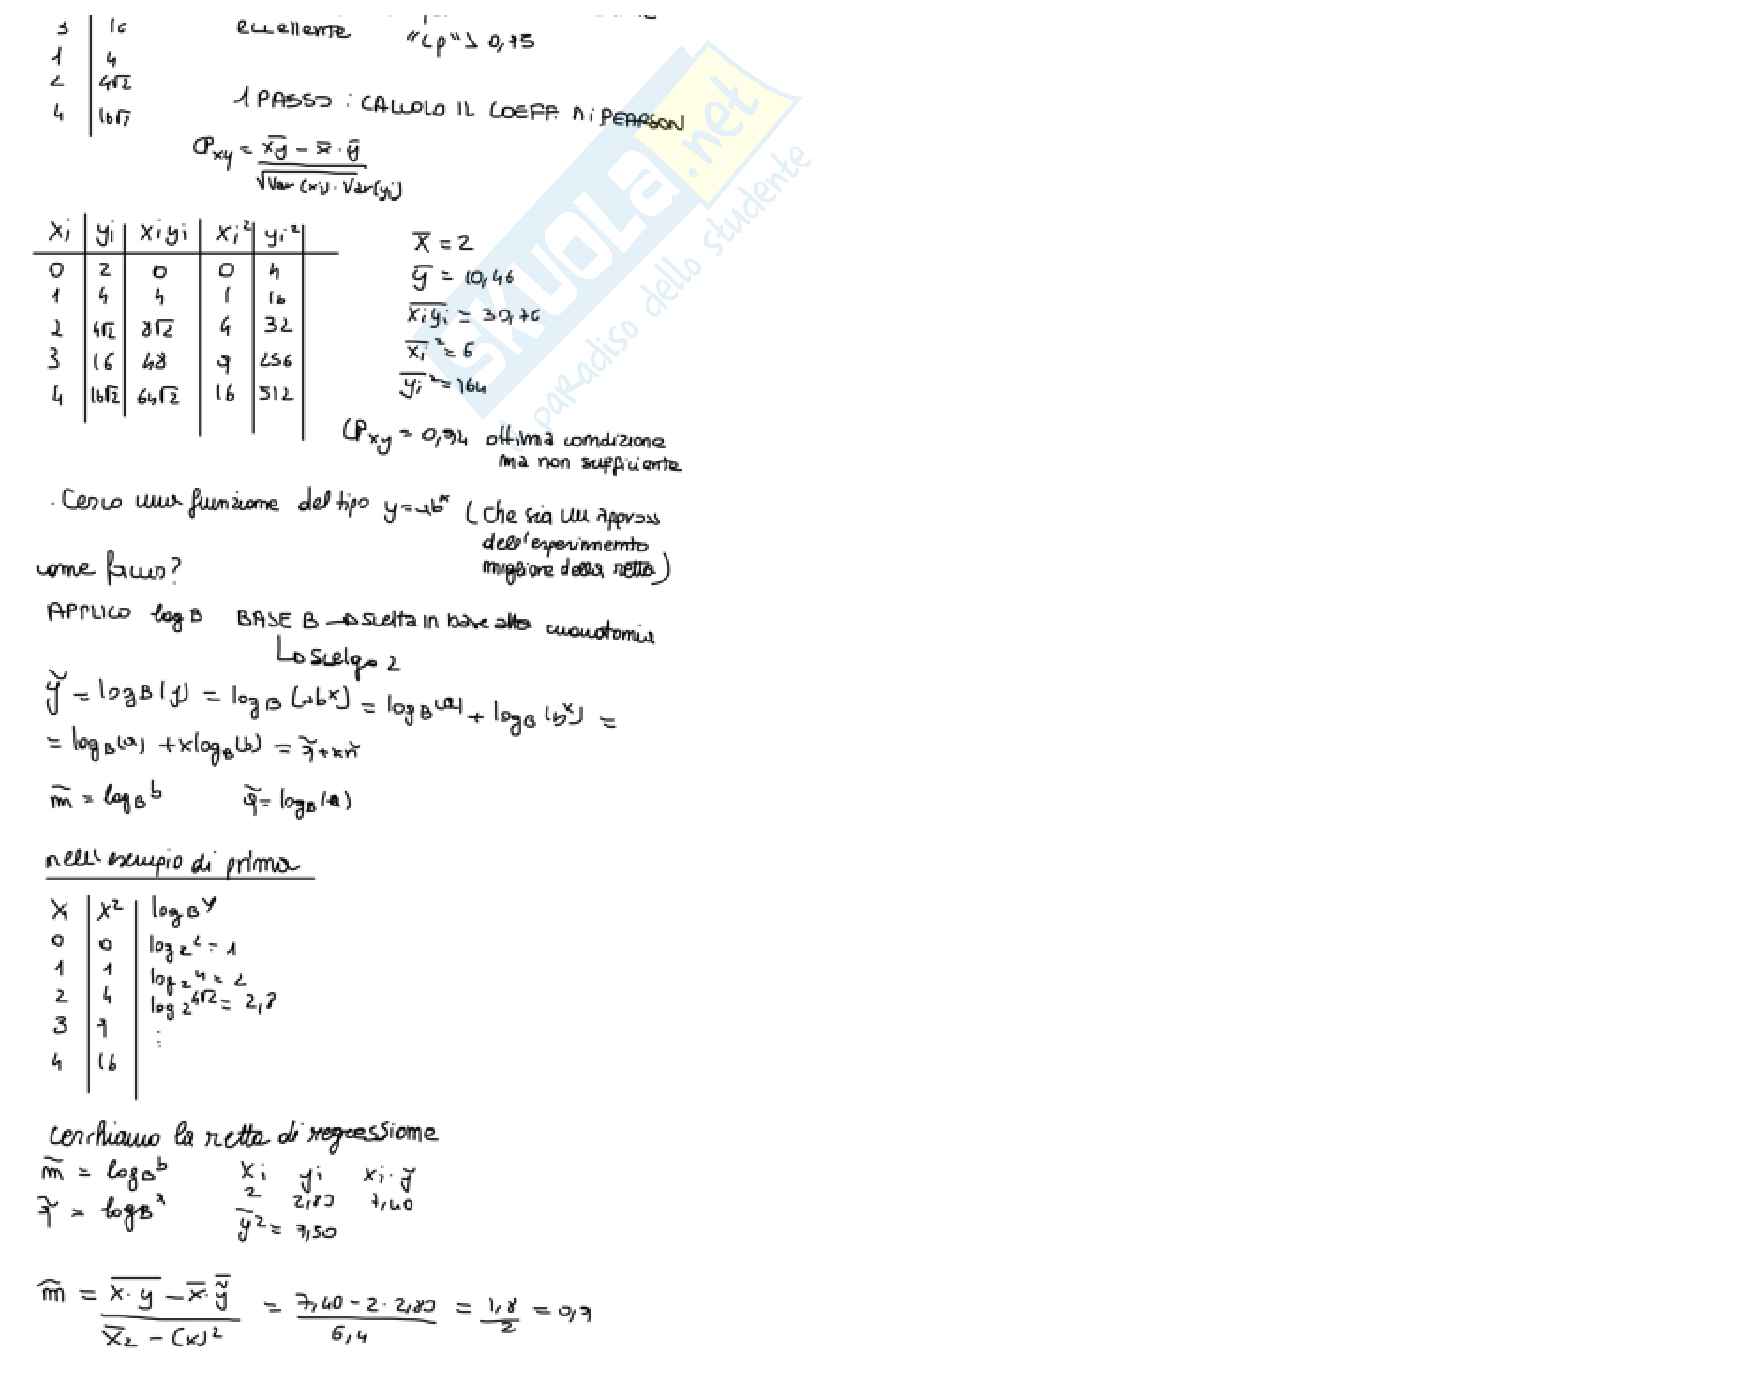 3 | 16 eccellente "Cp" > 0,75
1 | 4
2 | 4√2
4 | 16√2
1 PASSO : CALCOLO IL COEFF. Di PEARSON
CPxy = (x̅y̅ - x̅ · y̅) / √Var (xi) · Var(yi)
xi | yi | xiyi | xi² | yi² |
0 | 2 | 0 | 0 | 4
1 | 4 | 4 | 1 | 16
2 | 4√2 | 8√2 | 4 | 32
3 | 16 | 48 | 9 | 256
4 | 16√2 | 64√2 | 16 | 512
x̅ = 2
y̅ = 10,46
xiyi = 30,76
xi² = 6
yi² = 164
CPxy = 0,94 ottima condizione
ma non sufficiente
. Cerco una funzione del tipo y=ab^x (che sia un appross
dell'esperimento
migliore della retta)
come faccio?
APPLICO logB BASE B → scelta in base alla
↳ scelgo 2
ỹ = logB(y) = logB (ab^x) = logB(a) + logB (b^x) =
= logB(a) + xlogB(b) = q̃ + xm̃
m̃ = logB b q̃ = logB(a)
nell'esempio di prima
x | x² | logB y
0 | 0 | log2 2 = 1
1 | 1 | log2 4 = 2
2 | 4 | log2 4√2 = 2,8
3 | 9 | :
4 | 16 |
cerchiamo la retta di regressione
m̃ = logB b xi yi xi·ỹ
q̃ = logB a 2 2,80 7,40
y̅² = 7,50
m̃ = (x·y - x̅·ỹ) / (x̅2 - (x)²) = (7,40 - 2·2,80) / 6,4 = 1,8 / 2 = 0,9
SKUOLA.net
paradiso dello studente